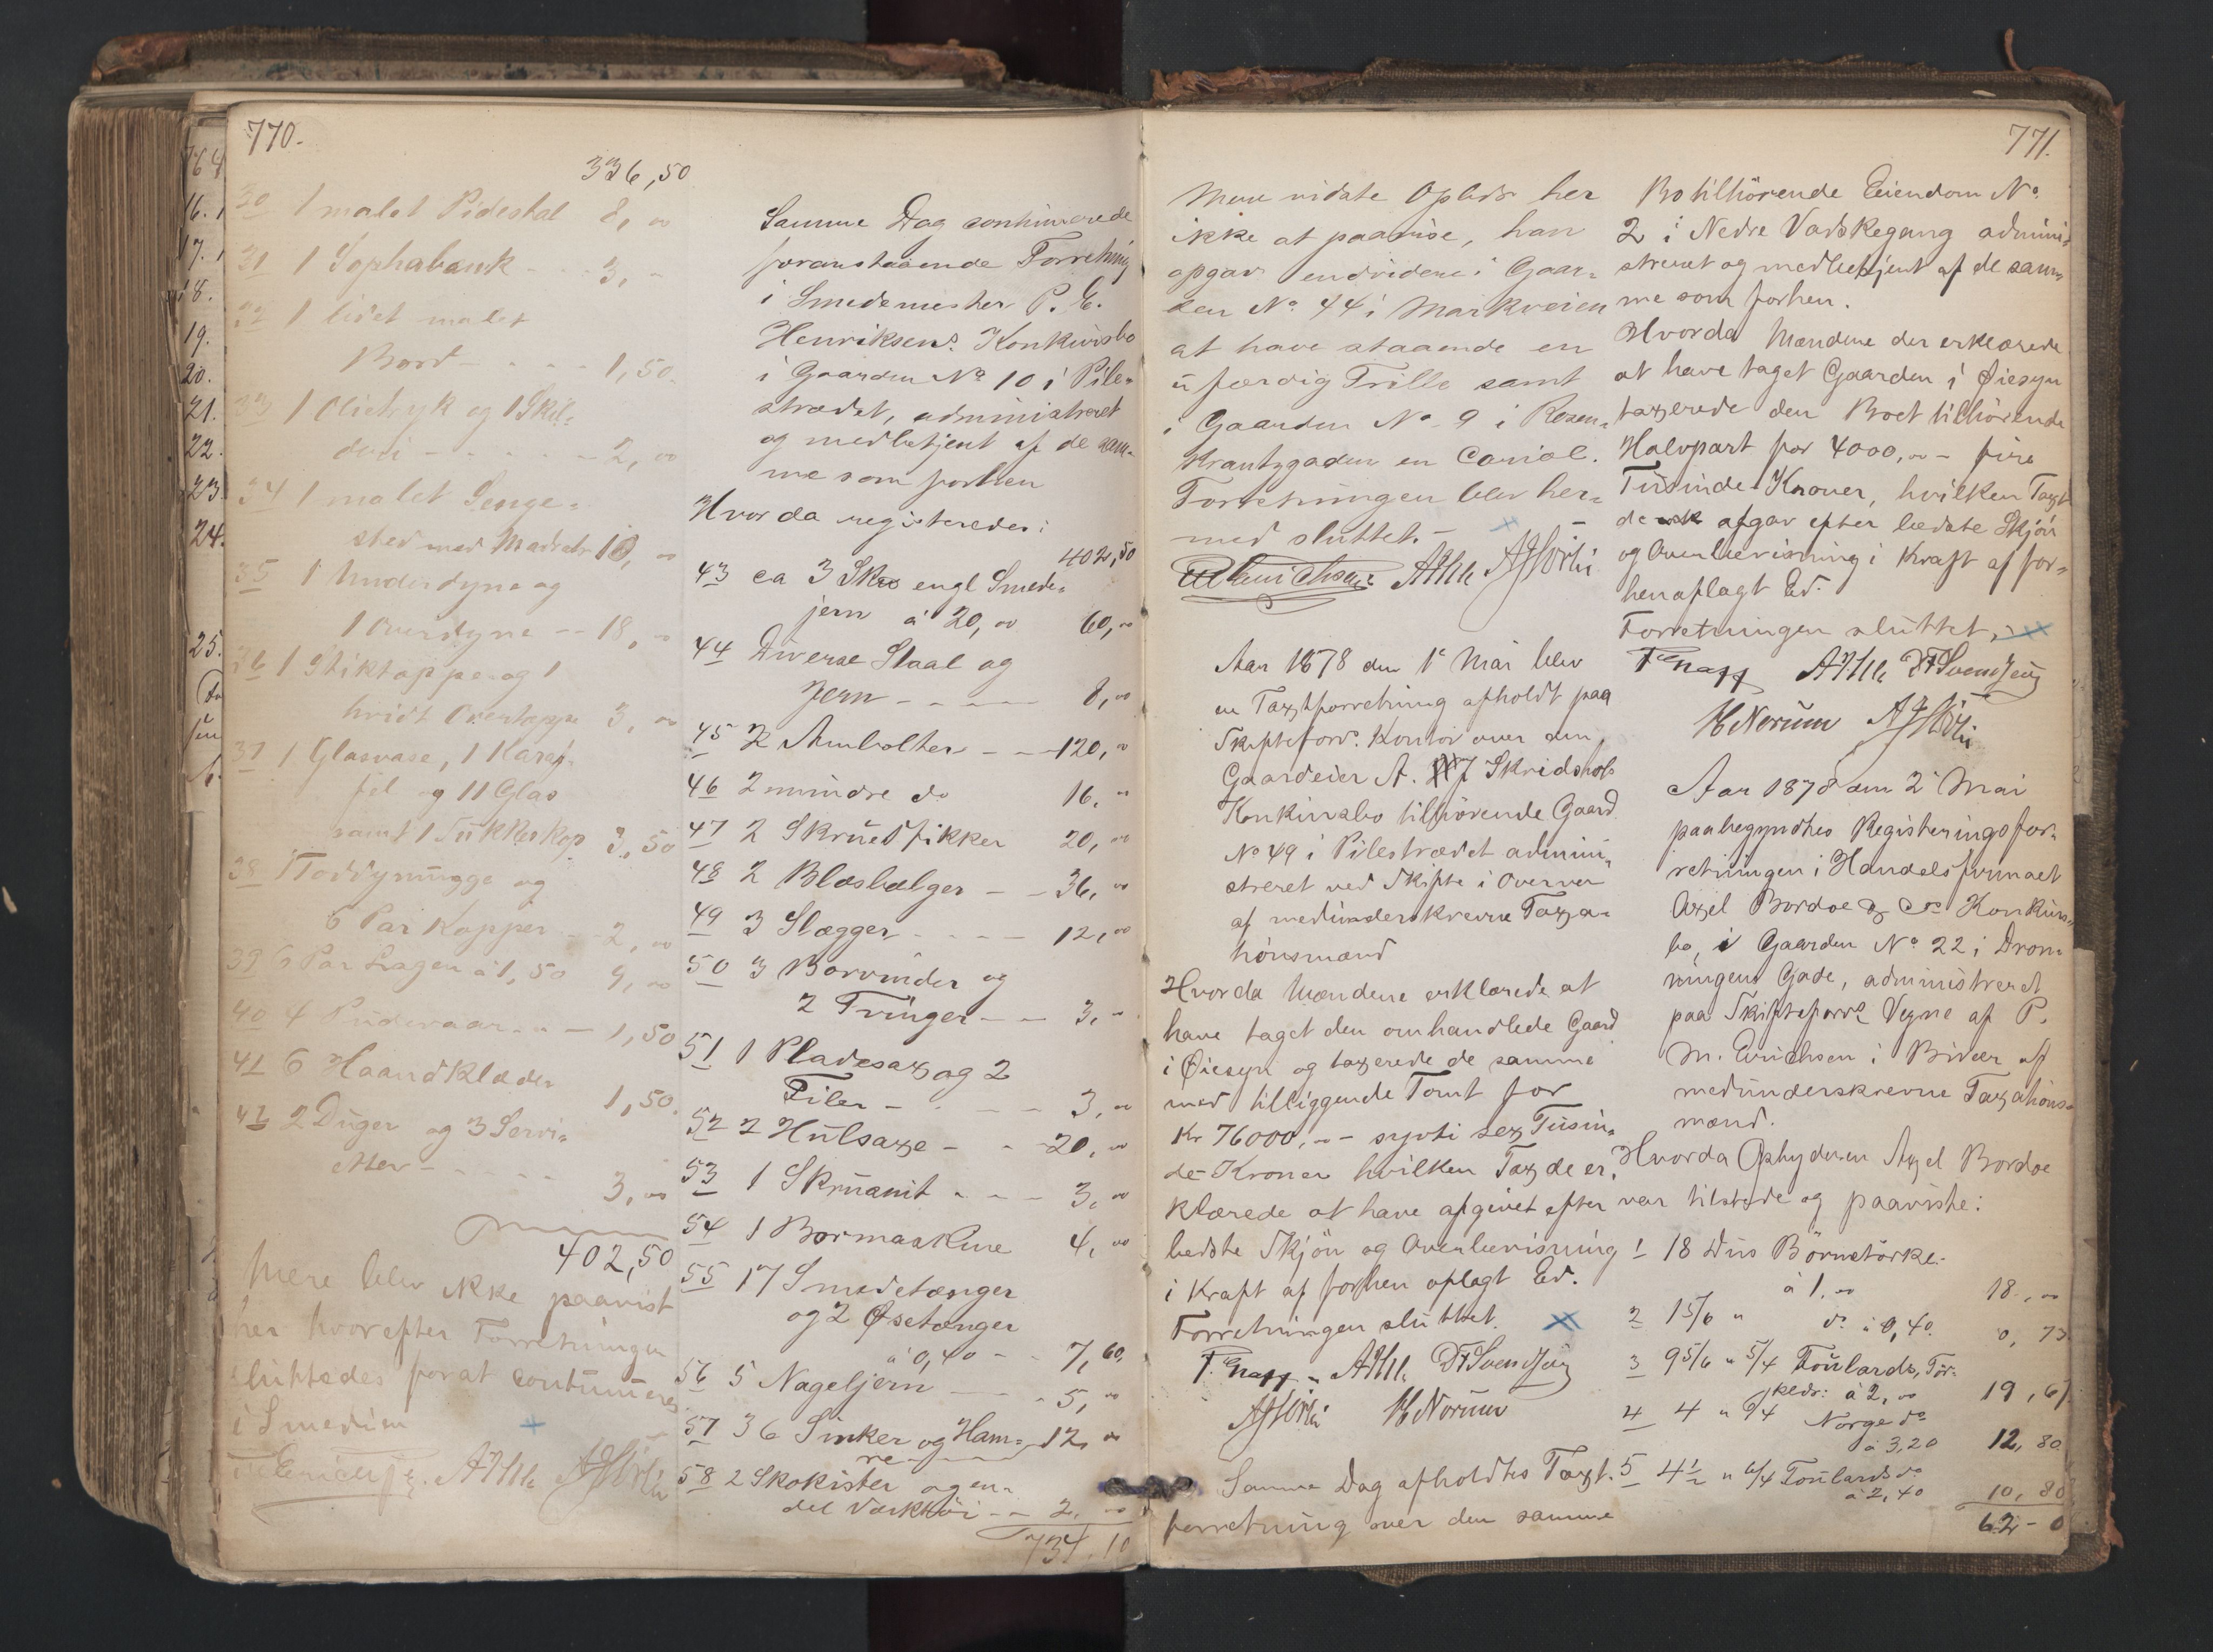 770.
336,50
30 1 malet Pidestal 8, 00
31 1 Sophabænk - - - 3, -
32 1 lidet malet
Bord - - - - 1,50.
33 1 Olietryk og 1 Skil-
deri - - - - - 2, 00
34 1 malet Senge-
sted med Madrats 10, 00
35 1 Underdyne og
1 Overdyne - - 18, 00
36 1 Stiktæppe og 1
hvidt Overtæppe 3, 00
37 1 Glasvase, 1 Karaf-
fel og 11 Glas
samt 1 Sukkerkop 3,50
38 1 Toddymugge og
6 Par Kopper - - 2, 00
39 6 Par Lagen à 1,50 9, 00
40 4 Pudevaar - - - 1,50
41 6 Haandklæder
1,50.
42 2 Duger og 3 Servi-
etter - - - - -
3, 00
402,50
Mere blev ikke paavist
her hvorefter Forretningen
sluttedes for at continueres
i Smedien
Samme Dag continuerede
foranstaaende Forretning
i Smedemester P. E.
Henriksens Konkursbo
i Gaarden No 10 i Pile-
strædet, administreret
og medbetjent af de sam-
me som forhen
Hvorda registeredes:
402,50
43 ca 3 Sk engl Smede-
jern à 20, 00 60, 00
44 Diverse Staal og
Jern - - - - - 8, 00
45 2 Ambolter - - - 120, 00
46 2 mindre do 16, 00
47 2 Skruestikker 20, 00
48 2 Blæsbælger - - 36, 00
49 3 Slægger - - - - 12, 00
50 3 Borvinder og
2 Tvinger - - 3, 00
51 1 Pladesax og 2
Filer - - - - 3, 00
52 2 Hulsaxe - - - 20, 00
53 1 Skruesnit - - - 3, 00
54 1 Bormaskine 4, 00
55 17 Smedetænger
og 2 Øsetænger
à 0,40 - - 7,60.
56 5 Nageljern - - - 5, 00
57 36 Sinker og Ham- 12, 00
re
58 2 Skokister og en
del Værktøi - - 2, 00
734,10
771.
Men vidste Opbds her
ikke at paavise, han
opgav endvidere i Gaar-
den No 44 i Markveien
at have staaende en
ufærdig Trille samt
i Gaarden No 9 i Rosen-
krantzgaden en Cariol.
Forretningen blev her-
med sluttet. -
Aar 1878 den 1 Mai blev
en Taxtforretning afholdt paa
Skifteforv. Kontor over den
Gaardeier A. J Skridshols
Konkursbo tilhørende Gaard
No 49 i Pilestrædet admini-
streret ved Skifte i Overvær
af medunderskrevne Taxa-
tionsmænd
Hvorda Mændene erklærede at
have taget den omhandlede Gaard
i Øiesyn og taxerede de samme
med tilliggende Tomt for
Kr 76000, 00 - sytti sex Tusin-
de Kroner hvilken Tax de er-
klærede at have afgivet efter
bedste Skjøn og Overbevisning
i Kraft af forhen aflagt Ed.
Forretningen sluttet.
Samme Dag afholdtes Taxt-
forretning over den samme
Bo tilhørende Eiendom No
2 i Nedre Vadskegang admini-
streret og medbetjent af de sam-
me som forhen.
Hvorda Mændene der erklærede
at have taget Gaarden i Øiesyn
taxerede den Boet tilhørende
Halvpart for 4000, 00 - fire
Tusinde Kroner, hvilken Taxt
de afgav efter bedste Skjøn
og Overbevisning i Kraft af for-
hen aflagt Ed.
Forretningen sluttet,
H Norum
Aar 1878 den 2 Mai
paabegyndtes Registeringsfor-
retningen i Handelsfirmaet
Axel Bordoe & Co Konkurs-
bo, i Gaarden No 22 i Dron-
ningens Gade, administreret
paa Skifteforv. Vegne af P.
M. Erichsen i Bivær af
medunderskrevne Taxations-
mænd.
Hvorda Ophyderen Axel Bordoe
var tilstede og paaviste:
1 18 Dus Børnetørkl.
à 1. 00 18, 00
2 1 5/6 " do à 0,40. 0, 73
3 9 5/6 " 5/4 Foulards, Tør-
klæder: à 2, 00 19,67
4 4 " 9/4 Norge do
à 3,20 12,80
5 4 1/2 " 6/4 Foulards do
à 2,40 10,80
62 - 0